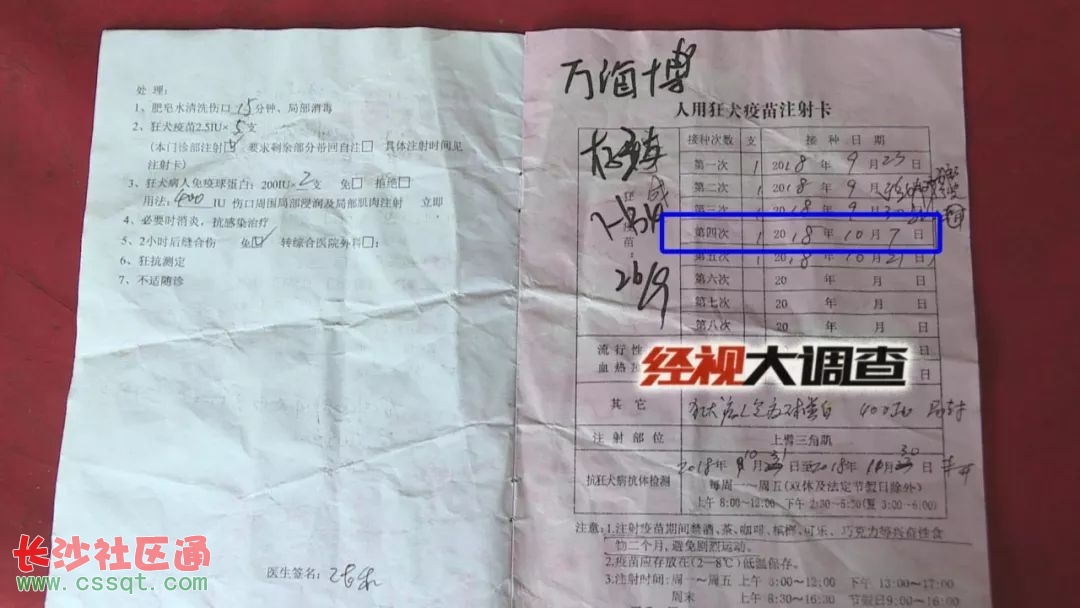 处 理:
1、肥皂水清洗伤口15分钟、局部消毒
2、狂犬疫苗2.5IU×5支
(本门诊部注射☑ 要求剩余部分带回自注□ 具体注射时间见
注射卡)
3、狂犬病人免疫球蛋白:200IU×2支 免□ 拒绝□
用法:400 IU 伤口周围局部浸润及局部肌肉注射 立即
4、必要时消炎,抗感染治疗
5、2小时后缝合伤 免☑ 转综合医院外科□:
6、狂抗测定
7、不适随诊
医生签名:
万海博
人用狂犬疫苗注射卡
接种次数 支 接 种 日 期
第一次 1 2018 年 9 月 23 日
第二次 1 2018 年 9
第三次 1 2018 年 9
第四次 1 2018 年 10 月 7 日
第五次 1 2018 年 10 月 21 日
第六次 20 年 月 日
第七次 20 年 月 日
第八次 20 年 月 日
疫
苗
:
流 行 性
血 热
日
日
经视大调查
其 它 狂犬病人免疫球蛋白 400IU
注 射 部 位 上臂三角肌
抗狂犬病抗体检测 2018年 10月31日至2018年 11月30日
每周一~周五(双休及法定节假日除外)
上午 8:00~12:00 下午 2:30~5:30(夏 3:00~6:00)
注意:1.注射疫苗期间禁酒、茶、咖啡、槟榔、可乐、巧克力等兴奋性食
物二个月,避免剧烈运动。
2.疫苗应存放在(2—8℃)低温保存。
3.注射时间:周一~周五 上午 8:00~12:00 下午 13:00~17:00
周末 上午 8:30~16:30 节假日9:00~16:00
长沙社区通
www.cssqt.com